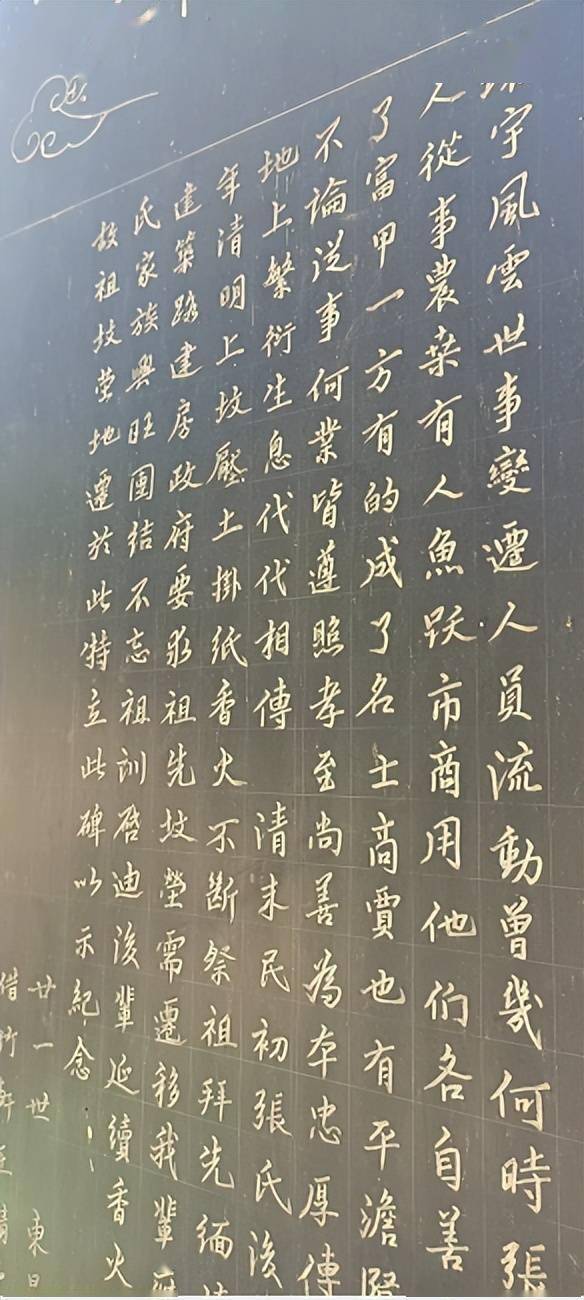 宇風雲世事變遷人員流動曾幾何時張
人從事農桑有人魚跃市商用他们各自善
了富甲一方有的成了名士商賈也有平澹
不論従事何業皆遵照孝至尚善為本忠厚傳
地上繁衍生息代代相傳 清末民初張氏後
年清明上坟壓土掛紙香火不斷祭祖拜先緬
建築路建房政府要求祖先坟塋需遷移我輩
氏家族興旺團结不忘祖训啓迪後輩延續香火
故祖坟塋地遷於此特立此碑以示紀念！
廿一世 東